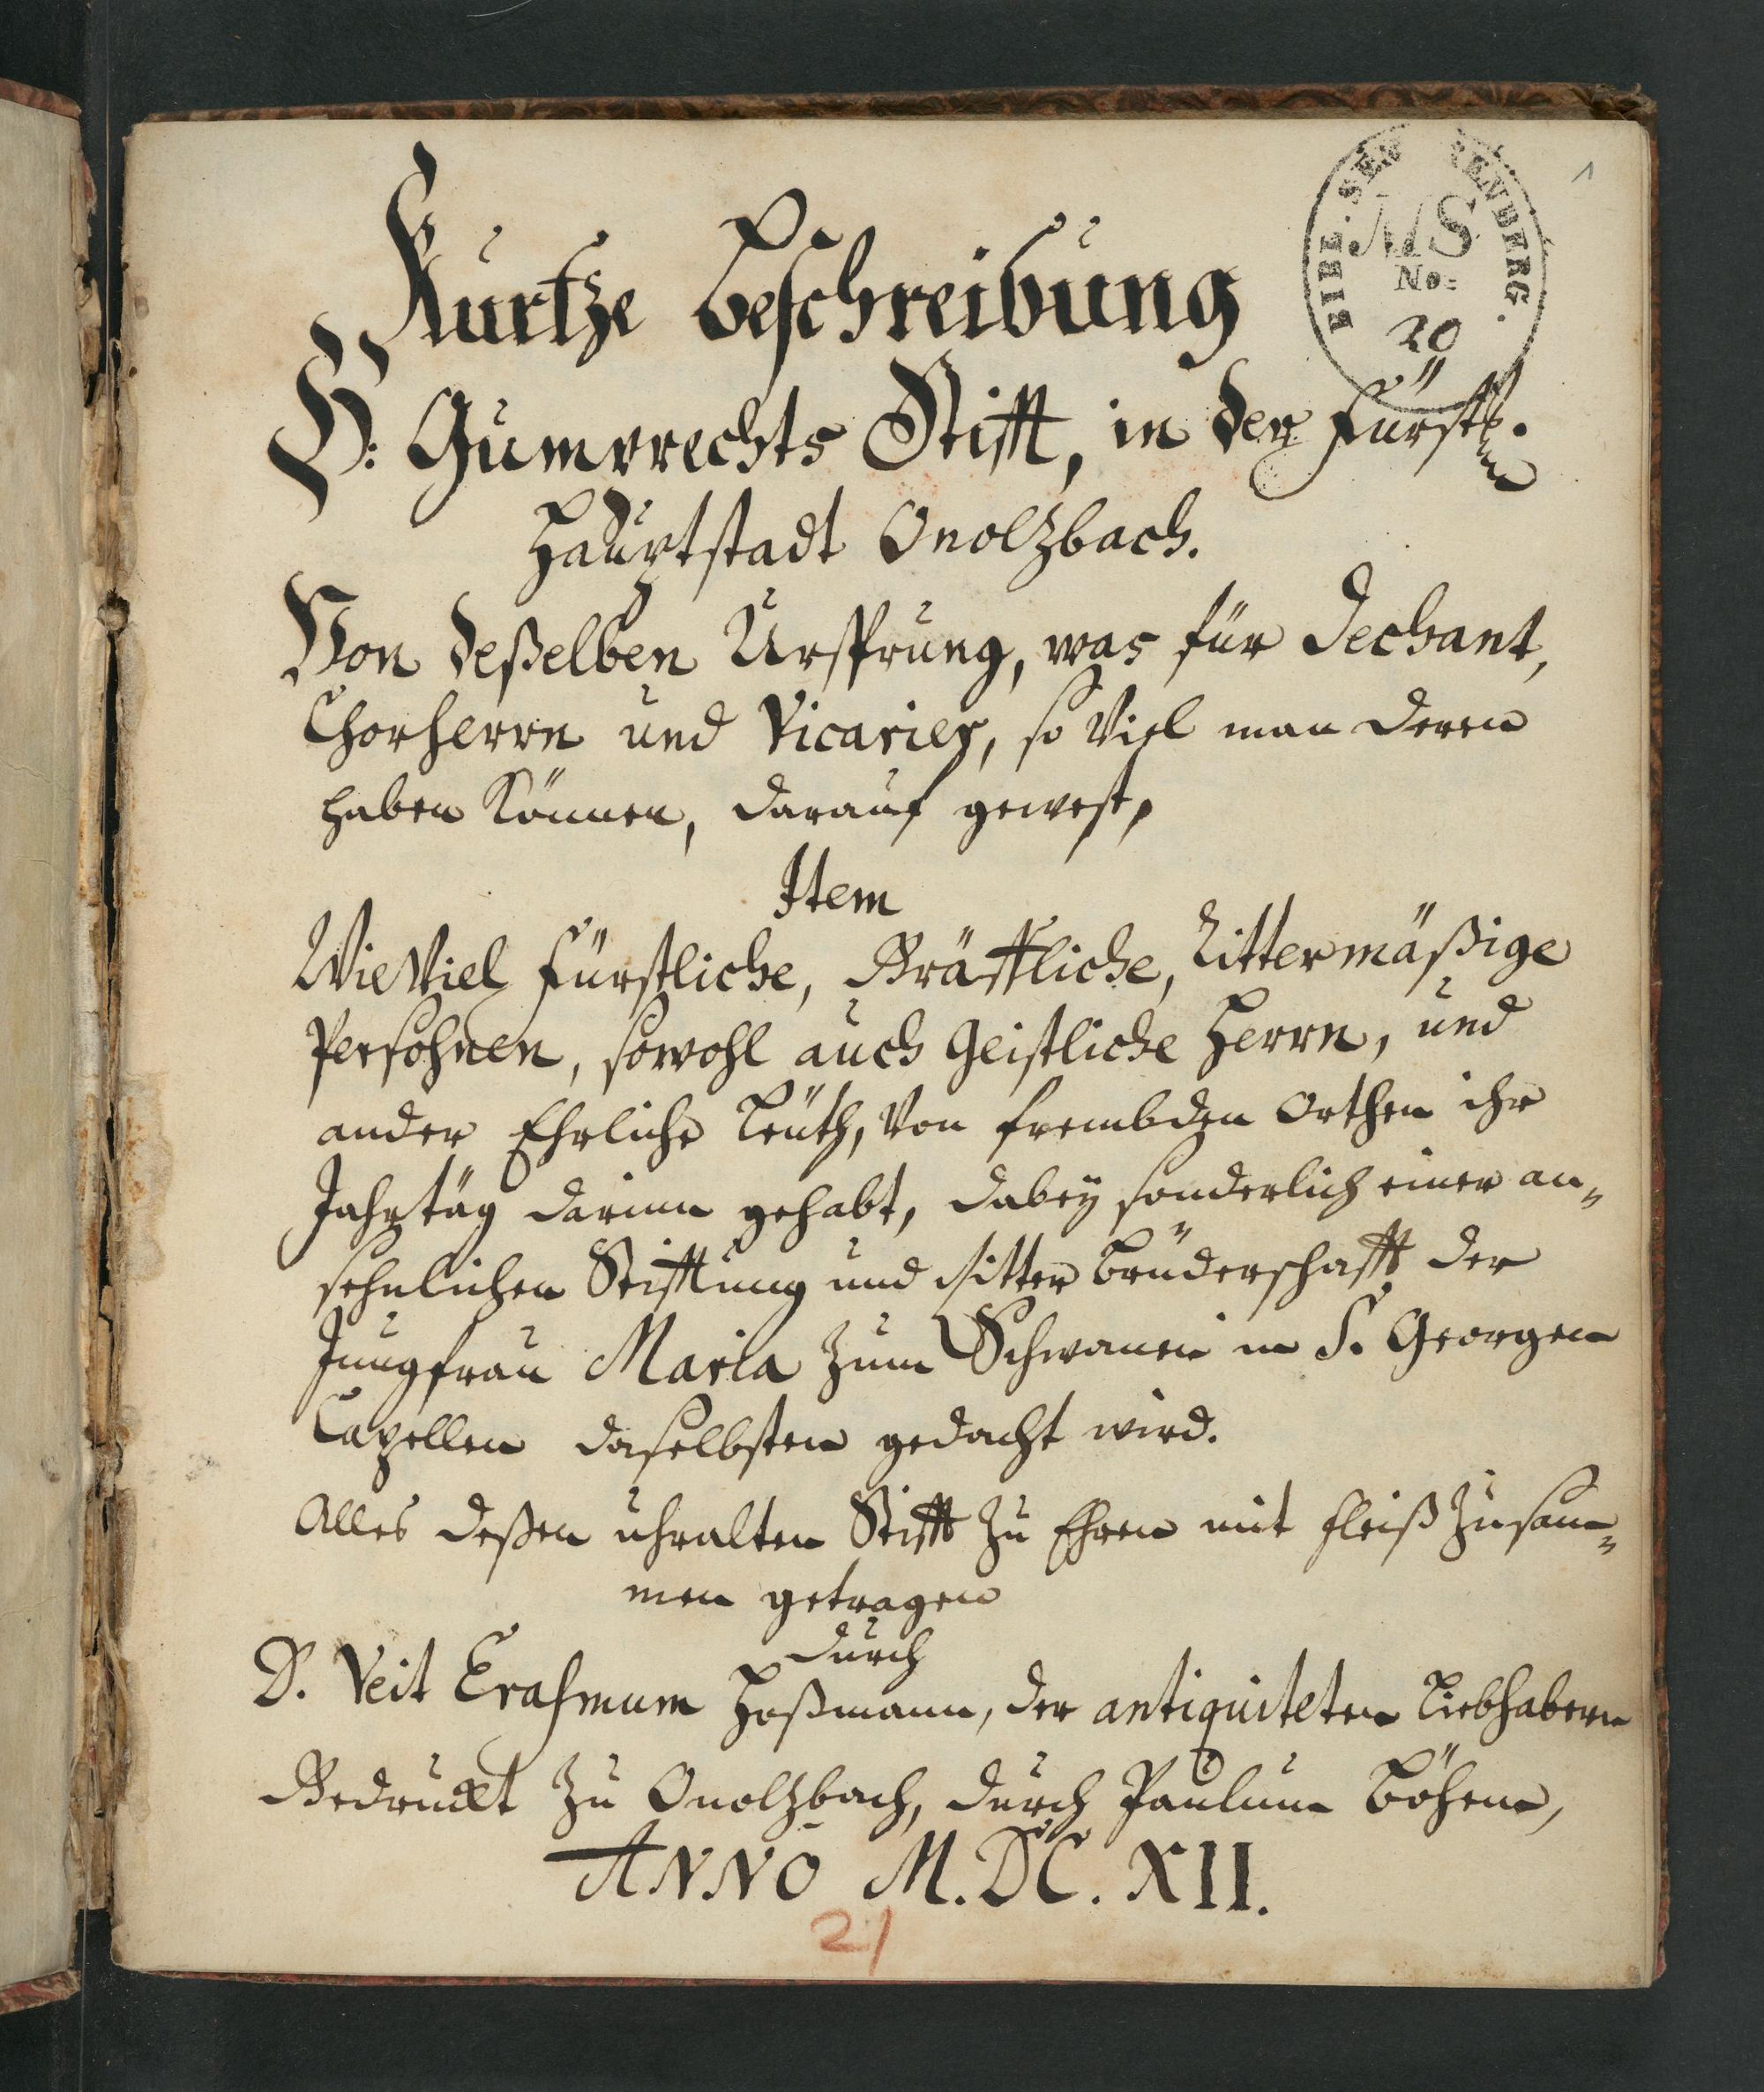 1
BIBL. SE ENBERG.
MS
No.
20
Kurtze Beschreibung
S: Gumprechts Stifft, in der Fürstl.
Hauptstadt Onolzbach.
Von deßelben Ursprung, was für Dechant,
Chorherrn und Vicarier, so Viel man deren
haben können, darauf gewest,
Item
Wie Viel fürstliche, Gräffliche, Rittermäßige
Persohnen, sowohl auch Geistliche Herrn, und
ander Ehrliche Leüth, Von frembden Orthen ihr
Jahrtäg darinn gehabt, dabey sonderlich einer an-
sehnlichen Stifftung und Ritter Brüderschafft der
Jungfrau Maria zum Schwanen in S. Georgen
Capellen daselbsten gedacht wird.
Alles deßen uhralten Stifft zu Ehren mit fleiß zusam-
men getragen
durch
D. Veit Erasmum Hoßmann, der antiquiteten Liebhabern
Gedruckt zu Onolzbach, durch Paulum Böhem,
ANNO M.DC.XII.
21